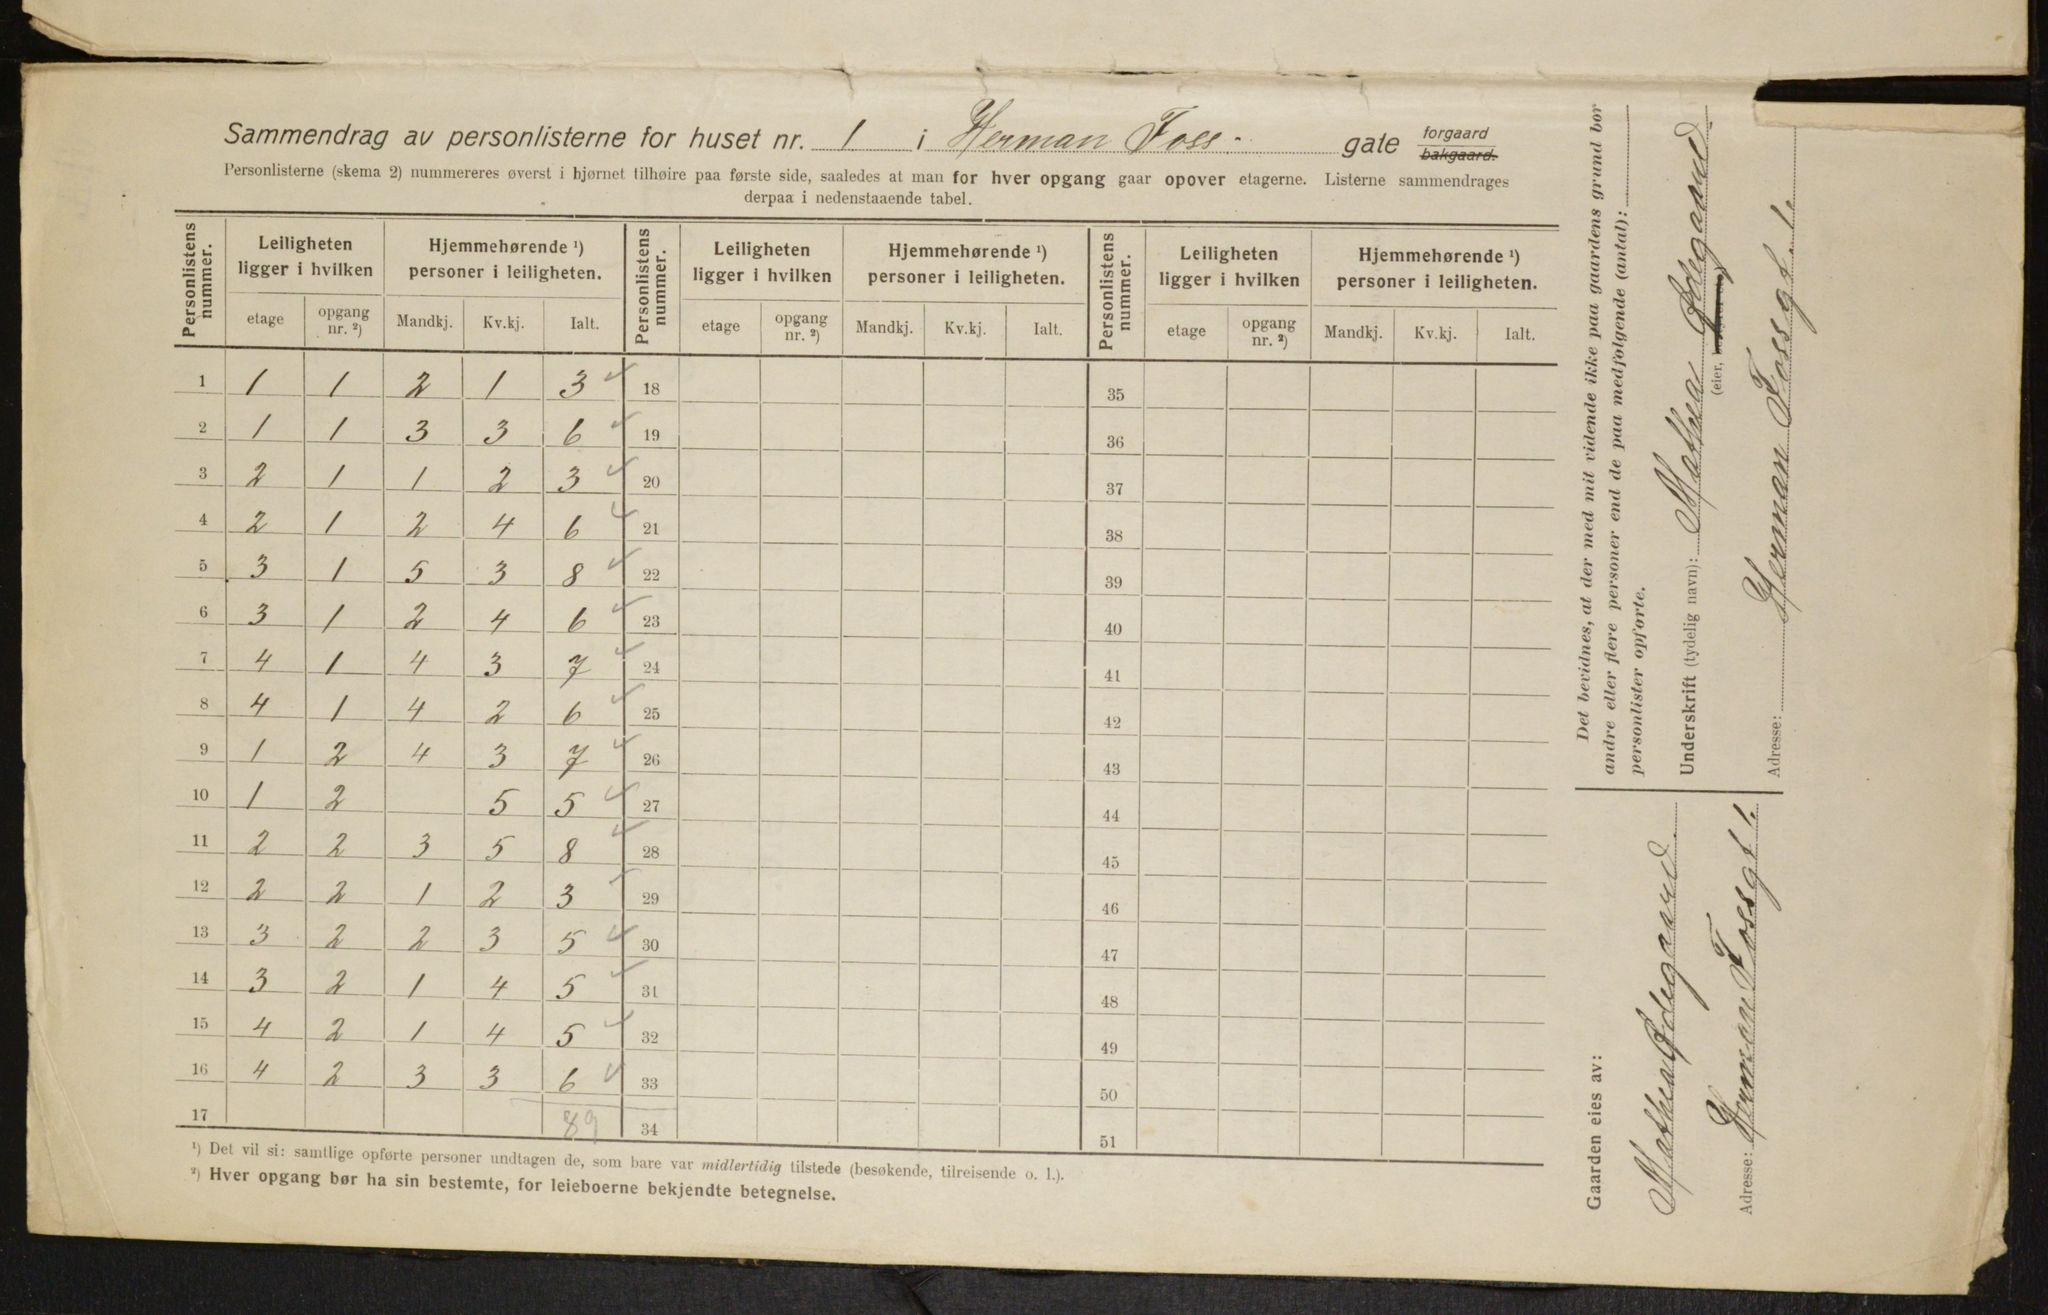 Sammendrag av personlisterne for huset nr. 1 i Herman Foss- gate forgaard bakgaard.
Personlisterne (skema 2) nummereres øverst i hjørnet tilhøire paa første side, saaledes at man for hver opgang gaar opover etagerne. Listerne sammendrages
derpaa i nedenstaaende tabel.
Personlistens nummer. Leiligheten ligger i hvilken Hjemmehørende ¹) personer i leiligheten. Personlistens nummer. Leiligheten ligger i hvilken Hjemmehørende ¹) personer i leiligheten. Personlistens nummer. Leiligheten ligger i hvilken Hjemmehørende ¹) personer i leiligheten.
etage opgang nr. ²) Mandkj. Kv.kj. Ialt. etage opgang nr. ²) Mandkj. Kv.kj. Ialt. etage opgang nr. ²) Mandkj. Kv.kj. Ialt.
1 1 1 2 1 3 ✓ 18 35
2 1 1 3 3 6 ✓ 19 36
3 2 1 1 2 3 ✓ 20 37
4 2 1 2 4 6 ✓ 21 38
5 3 1 5 3 8 ✓ 22 39
6 3 1 2 4 6 ✓ 23 40
7 4 1 4 3 7 ✓ 24 41
8 4 1 4 2 6 ✓ 25 42
9 1 2 4 3 7 ✓ 26 43
10 1 2 5 5 ✓ 27 44
11 2 2 3 5 8 ✓ 28 45
12 2 2 1 2 3 ✓ 29 46
13 3 2 2 3 5 ✓ 30 47
14 3 2 1 4 5 ✓ 31 48
15 4 2 1 4 5 ✓ 32 49
16 4 2 3 3 6 ✓ 33 50
17 89 34 51
¹) Det vil si: samtlige opførte personer undtagen de, som bare var midlertidig tilstede (besøkende, tilreisende o. l.).
²) Hver opgang bør ha sin bestemte, for leieboerne bekjendte betegnelse.
Det bevidnes, at der med mit vidende ikke paa gaardens grund bor
andre eller flere personer end de paa medfølgende (antal):
personlister opførte.
Underskrift (tydelig navn): Mathea Ødegaard.
(eier,
Adresse: Herman Fossgt. 1.
Gaarden eies av:
Mathea Ødegaard.
Adresse: Herman Fossgt 1.